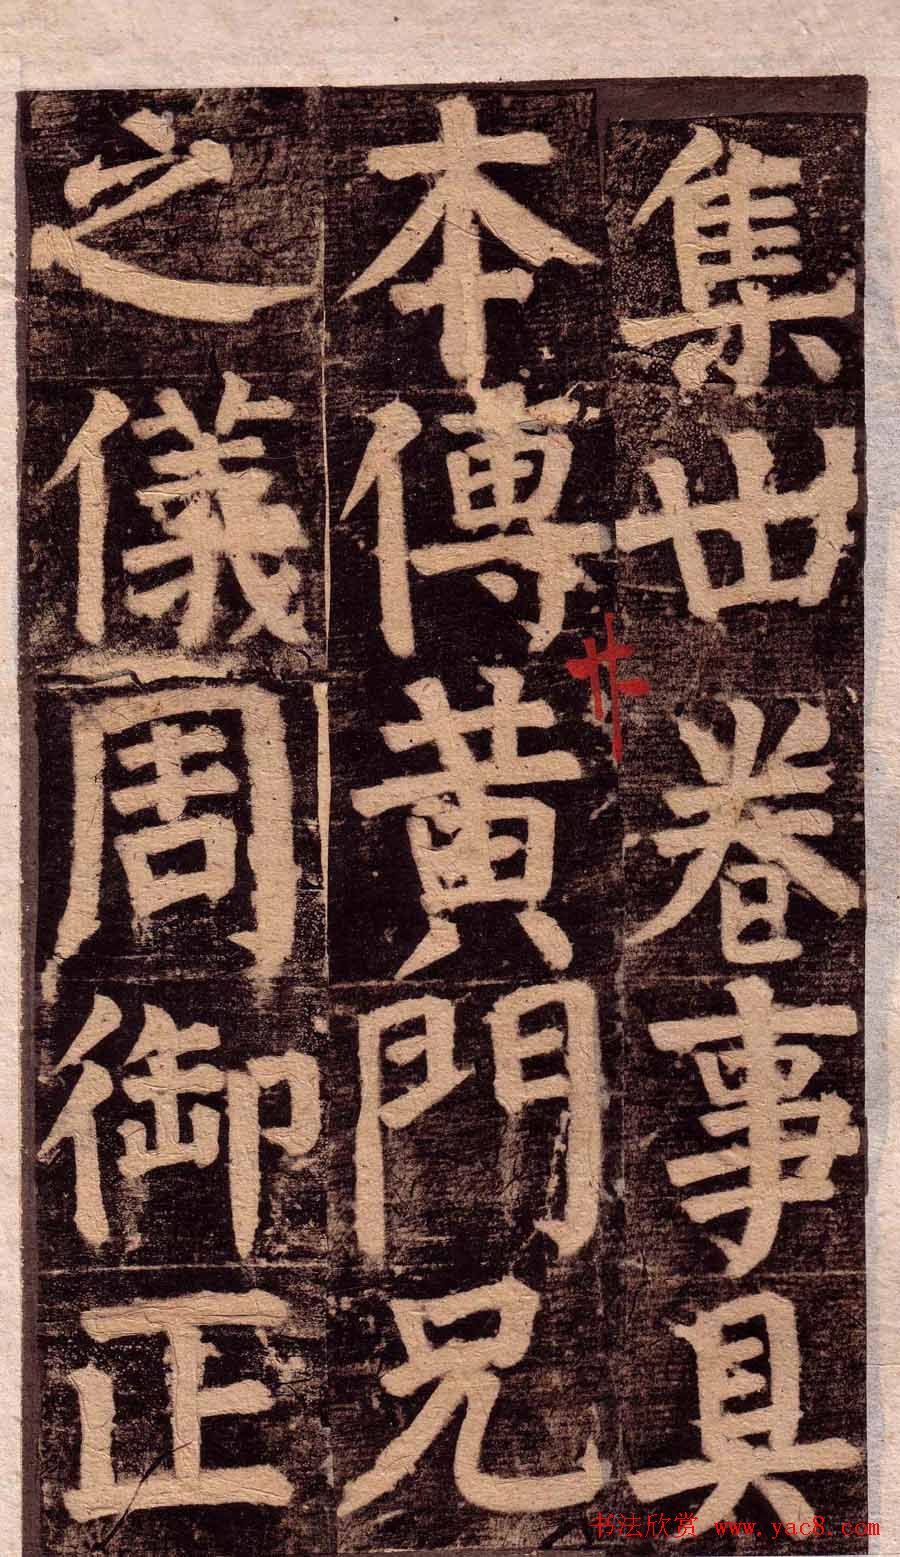 集卅卷事具
本傳黃門兄
之儀周御正
书法欣赏 www.yac8.com